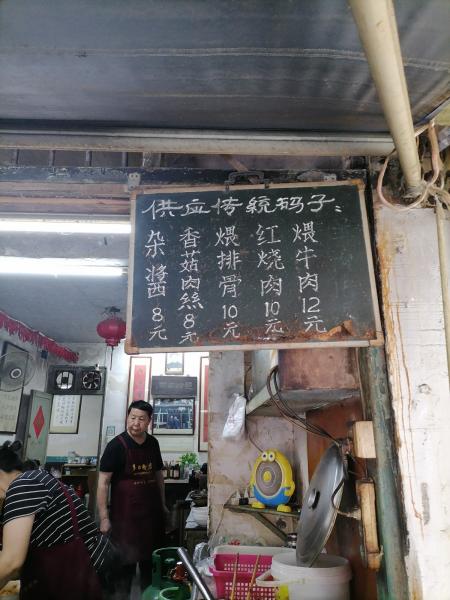 供应传統码子：
杂醬8元
香菇肉絲8元
煨排骨10元
红烧肉10元
煨牛肉12元